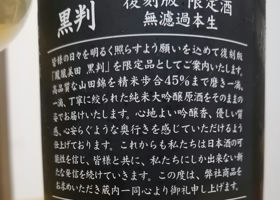 黒判
復刻版 限定酒
無濾過本生
皆様の日々を明るく照らすよう願いを込めて復刻版
「鳳凰美田 黒判」を限定品としてご案内いたします。
高品質な山田錦を精米歩合45%まで磨き一滴、
一滴、丁寧に搾られた純米大吟醸原酒をそのままの
姿でお届けいたします。心地よい吟醸香、優しい質
感、心安らぐような奥行きを感じていただけるよう
仕上げております。これからも私たちは日本酒の可
能性を信じ、皆様と共に、私たちにしか出来ない新
たな発信を続けていきます。この度は、弊社商品を
お求めいただき蔵内一同心より御礼申し上げます。